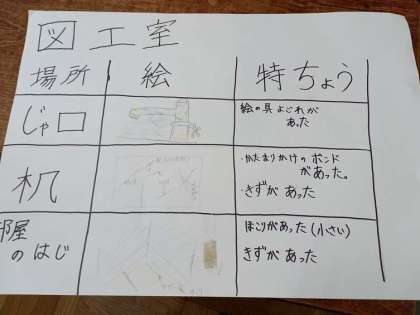 図工室
場所 絵 特ちょう
じゃ口
絵の具よごれが
あった
机
・かたまりかけのボンド
があった。
・きずがあった
部屋
のはじ
ほこりがあった(小さい)
きずがあった